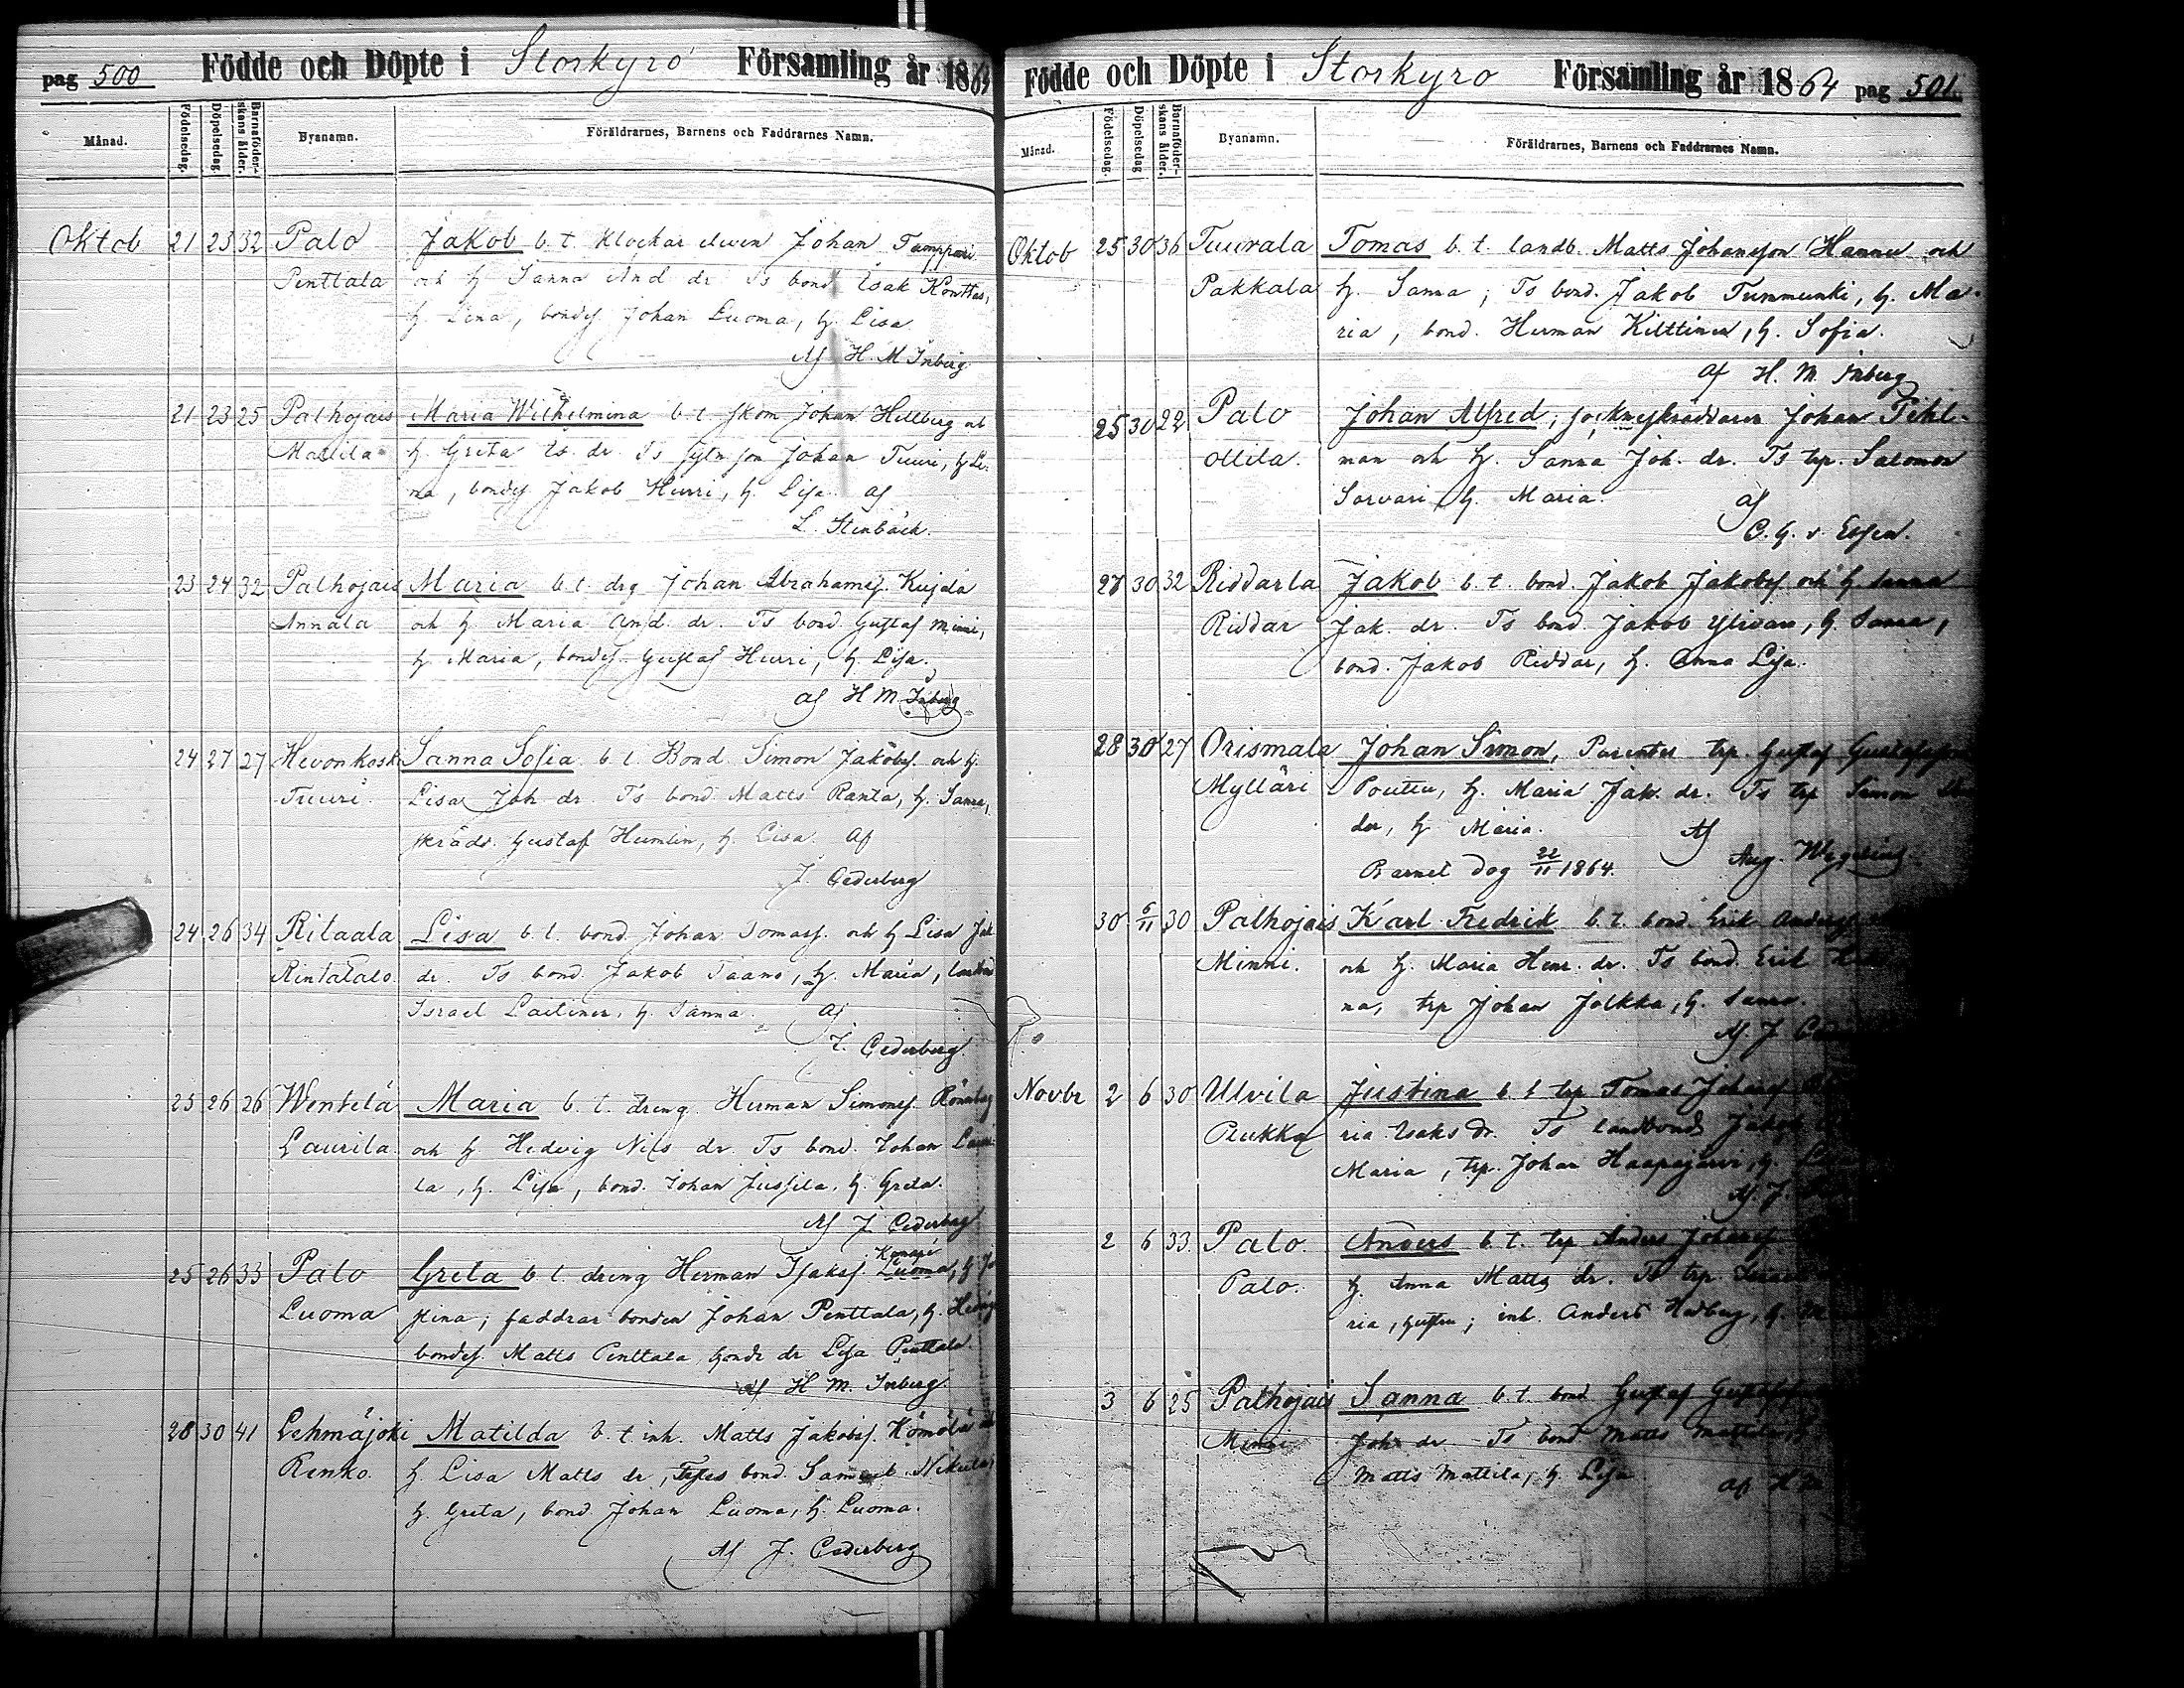 pag 500 Födde och Döpte i Storkyrö Församling år 1864
Månad. Födelsedag. Döpelsedag Barnaföderskans ålder. Byanamn. Föräldrarnes, Barnens och Faddrarnes Namn.
Oktob 21 23 32 Palo Jakob b. t. klockar eleven Johan Tamppari
Penttala och h. Sanna And. dr. Ts bond. Isak Konttas,
h. Lina, bondes. Johan Luoma, h. Lisa
Af H. M Inberg
21 23 25 Palhojais Maria Wilhelmina b. t. skom. Johan Hellberg och
Mattila h. Greta Is. dr. Ts sytn. son Johan Tuuri, h. Li-
na, bondes. Jakob Hurri, h. Lisa af
L. Stenbäck.
23 24 32 Palhojais Maria b. t. drg Johan Abrahams. Kujala
Annala och h. Maria And. dr. Ts bond. Gustaf Minni,
h. Maria, bondes. Gustaf Hurri, h. Lisa.
af H M Inberg
24 27 27 Hevonkoski Sanna Sofia b. t. Bond Simon Jakobs. och h.
Tuuri Lisa Joh dr. Ts bond Matts Ranta, h. Sanna,
skrädd. Gustaf Humlin, h. Lisa. af
J. Cederberg
24 26 34 Ritaala Lisa b. t. bond Johan Tomass. och h Lisa Jak
Rintatalo. dr. Ts bond Jakob Taamo, h. Maria,
Israel Lailinen, h. Sanna. af
J. Cederberg
25 26 26 Wentelä Maria b. t. dreng Herman Simons. Rönnberg
Laurila och h. Hedvig Nils dr. Ts bond. Johan Lauri-
la, h. Lisa, bond. Johan Jussila, h. Greta.
Af J. Cederberg
Konapi
25 26 33 Palo Greta b. t. dreng Herman Isaks. Luoma, h Ju
Luoma stina; faddrar bonden Johan Penttala, h. Hedvig
bondes. Matts Penttala, bonde dr Lisa Penttala.
Af H M. Inberg
28 30 41 Lehmäjoki Matilda b. t. inh. Matts Jakobs. Kömölä och
Renko. h. Lisa Matts dr, Testes bond. Samuel Nikula,
h. Greta, bond. Johan Luoma, h. Luoma.
Af J. Cederberg
Födde och Döpte i Storkyro Församling år 1864 pag 501.
Månad. Födelsedag. Döpelsedag Barnaföderskans ålder. Byanamn. Föräldrarnes, Barnens och Faddrarnes Namn.
Oktob 25 30 36 Tuurala Tomas b. t. landb. Matts Johansson Hannu och
Pakkala h. Sanna; Ts bond. Jakob Tummunki, h. Ma-
ria, bond. Herman Kilttinen, h. Sofia.
af H. M. Inberg
25 30 22 Palo Johan Alfred; sockneskräddaren Johan Pihl-
Ollila. man och h. Sanna Joh. dr. Ts trp. Salomon
Sorvari, h. Maria. af
C. G. v. Essen.
27 30 32 Riddarla Jakob b. t. bond. Jakob Jakobs. och h Sanna
Riddar Jak. dr. Ts bond. Jakob Ylivari, h. Sanna,
bond. Jakob Riddar, h. Anna Lisa.
28 30 27 Orismala Johan Simon, Parentes trp. Gustaf Gustafsson
Mylläri Pouttu, h. Maria Jak. dr. Ts trp Simon
der, h. Maria. Af
Barnet dog 22/11 1864. Aug. Wegelius
30 6/11 30 Palhojais Karl Fredrik b. t. bond. Erik Anders.
Minni. och h. Maria Henr. dr. Ts bond. Erik
na, trp Johan Jolkka, h. Sanna.
Af J Ceder
Novbr 2 6 30 Ulvila Justina b. t trp Tomas Johans.
Pukka ria Isaks dr. Ts landbond. Jakob
Maria, trp. Johan Haapajärvi, h.
Af. J.
2 6 33 Palo. Anders b. t. trp Anders Johans.
Palo. h. Anna Matts dr. Ts trp.
ria, ; inh. Anders Hedberg, h.
3 6 25 Palhojais Sanna b. t. bond Gustaf Gustafs
Minni Joh. dr Ts bond Matts Mattila, h
Matts Mattila, h. Lisa
af H M